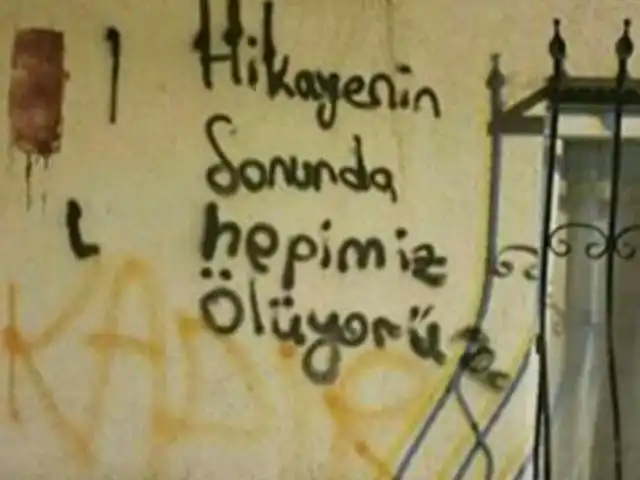 Hikayenin
Sonunda
hepimiz
Ölüyorü